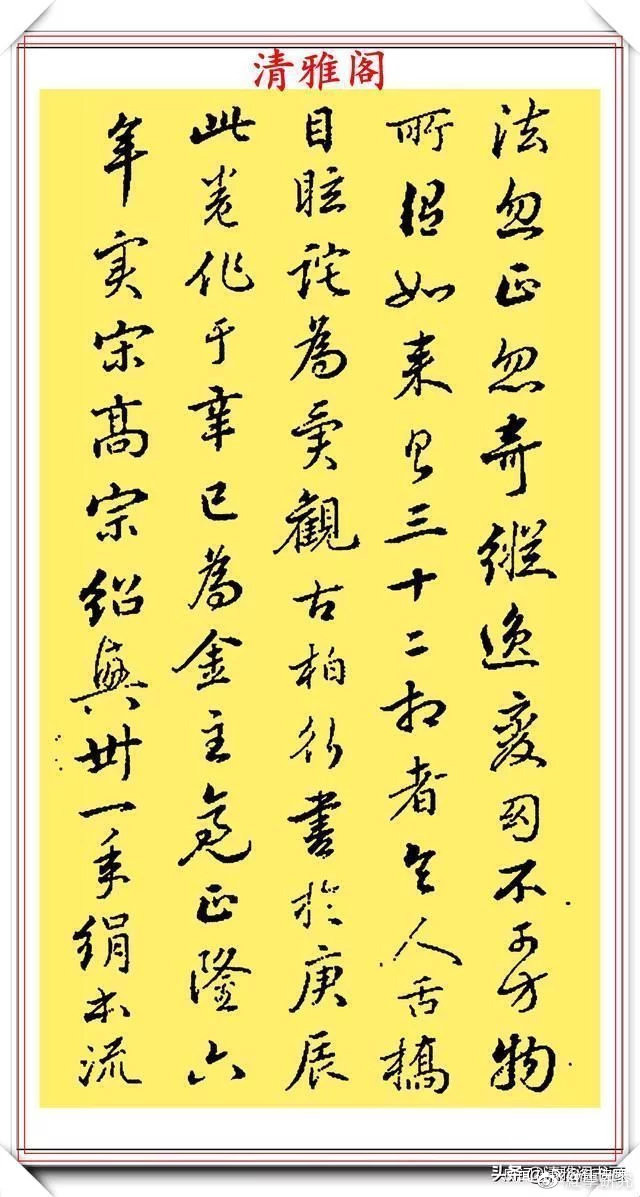 清雅阁
法忽正忽奇縱逸變幻不可方物
所謂如來具三十二相者令人舌撟
目眩詫為異觀古柏行書於庚辰
此卷作于辛巳為金主亮正隆六
年实宋高宗紹興卅一年絹本流
头条